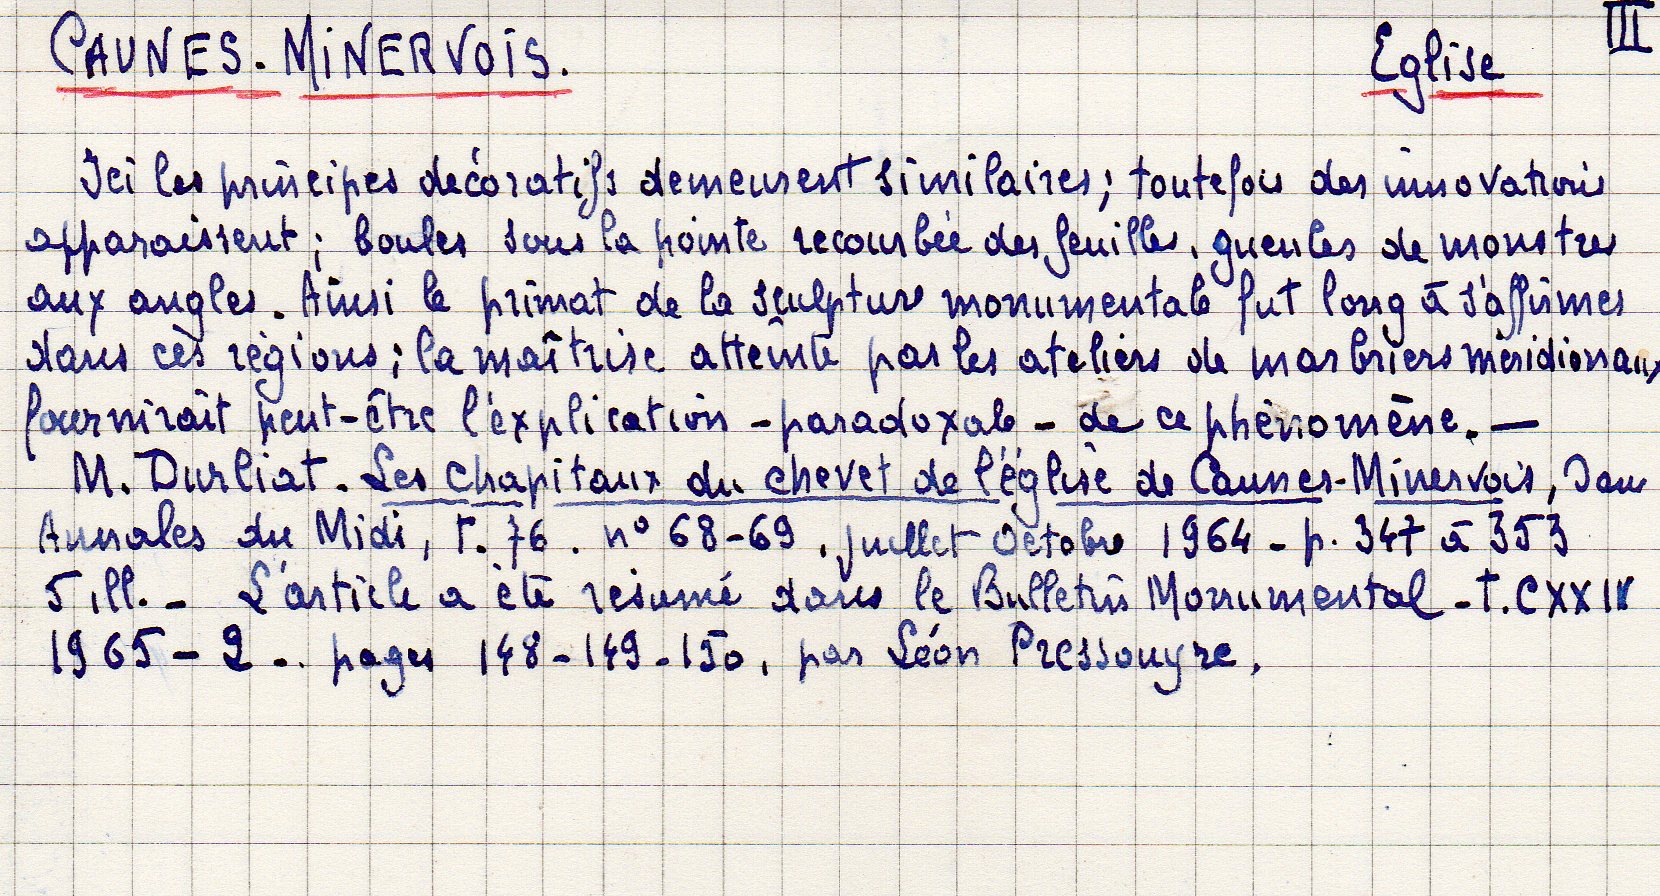 CAUNES-MINERVOIS. Eglise III
Ici les principes décoratifs demeurent similaires; toutefois des innovations
apparaissent; boules sous la pointe recourbée des feuilles, gueules de monstres
aux angles. Ainsi le primat de la sculpture monumentale fut long à s'affirmer
dans ces régions; la maîtrise atteinte par les ateliers de marbriers méridionaux
fournirait peut-être l'explication - paradoxale - de ce phénomène. —
M. Durliat. Les chapitaux du chevet de l'église de Caunes-Minervois, Dans
Annales du Midi, T. 76. n° 68-69, juillet Octobre 1964 - p. 347 à 353
5 ill. - L'article a été résumé dans le Bulletin Monumental - T. CXXIV
1965 - 2 -. pages 148-149-150, par Léon Pressouyre.